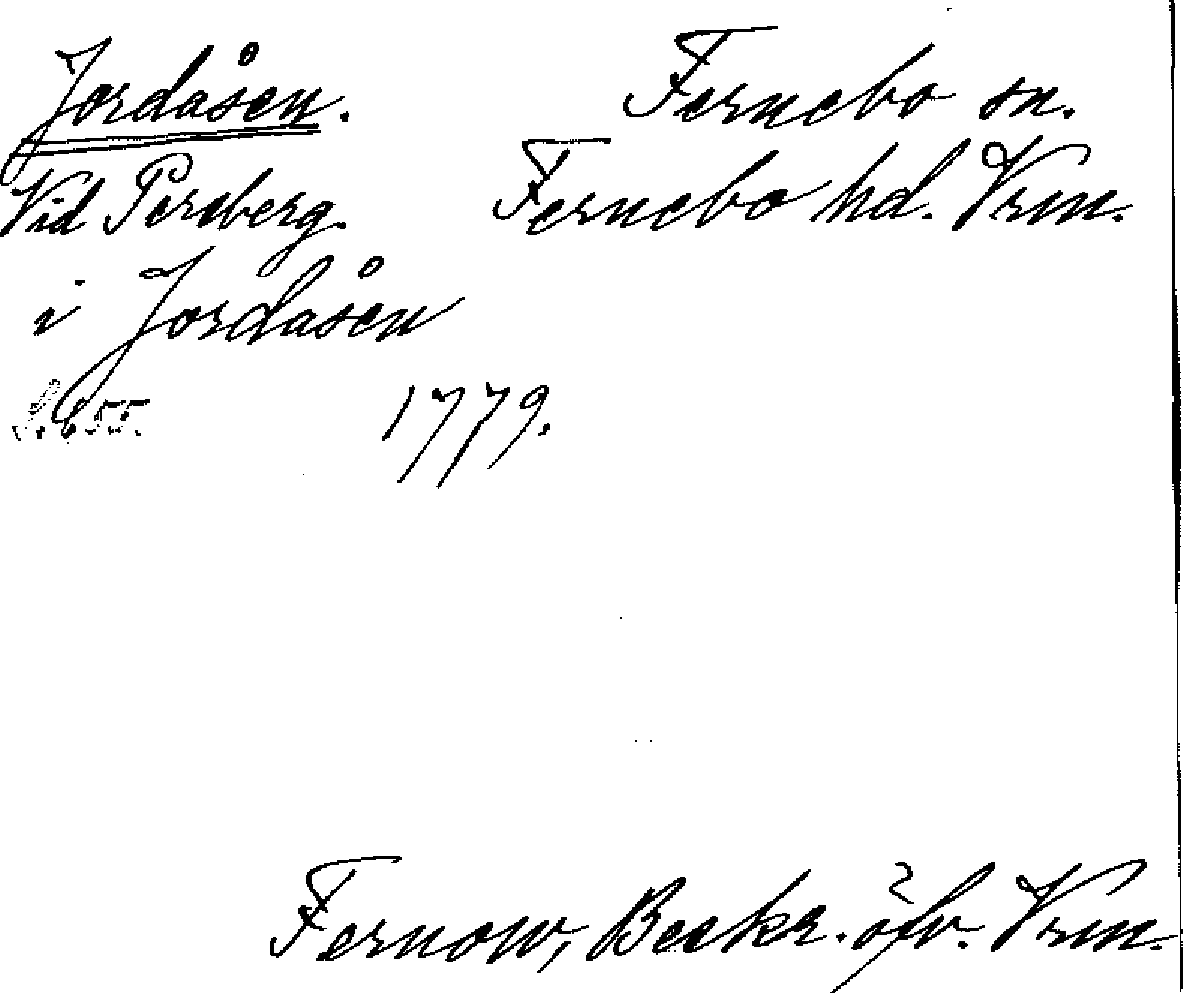 Jordåsen. Fernebo sn.
Vid Persberg. Fernebo hd. Vrm.
i Jordåsen
S. 655. 1779.
Fernow, Beskr. öfv. Vrm.